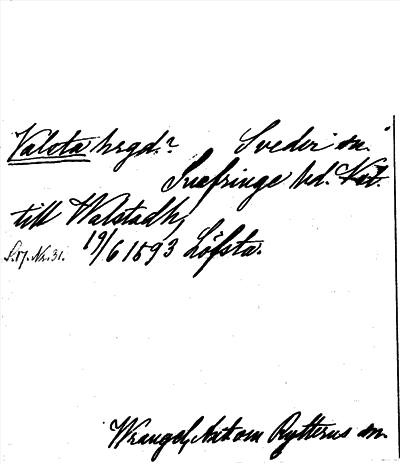 Valsta hrgd.? Sveders sn.
Snefringe hd. Kat.
till Walstadh,
S.17. Nr. 31. 19/6 1593 Löfsta.
Wrangel, Axt om Rytterns sn.